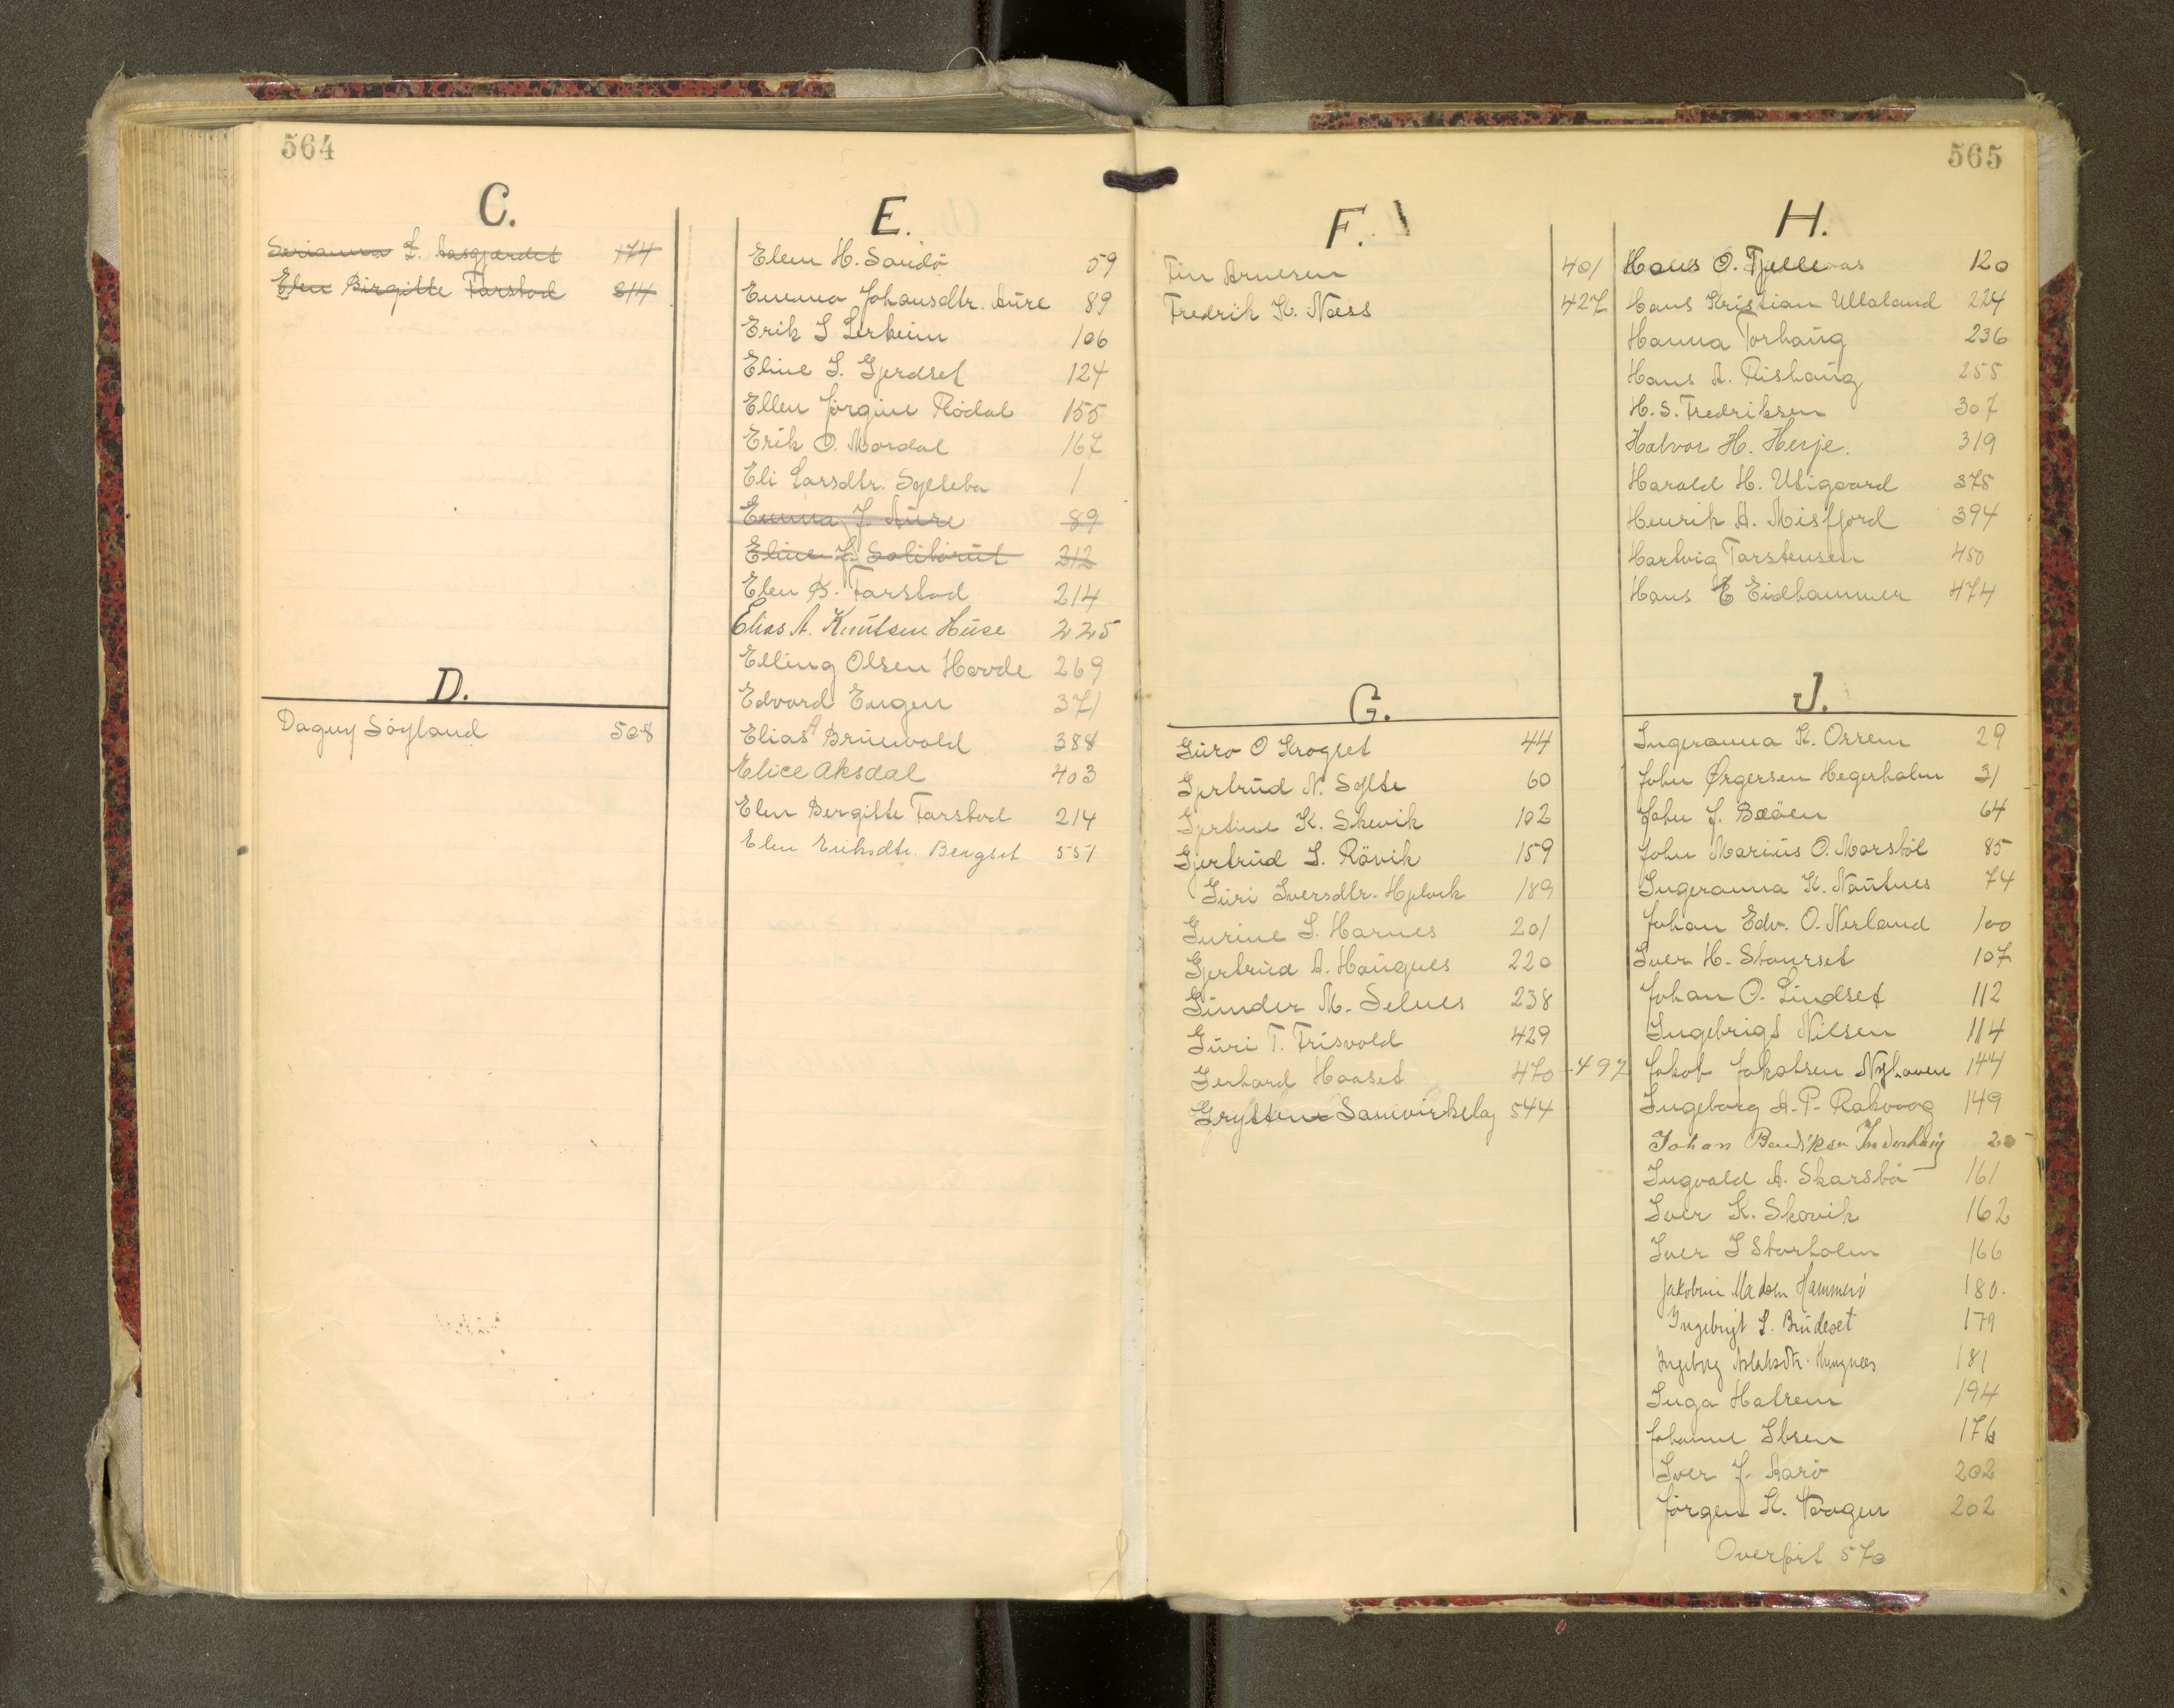 564
C.
Serianna L. Aasgjærdet 174
Elen Birgitte Farstad 214
D.
Dagny Söyland 508
E.
Elen H. Sandö 59
Emma Johansdtr. Aure 89
Erik S Lerheim 106
Eline L. Gjerdset 124
Ellen Jørgine Rödal 155
Erik O. Mordal 167
Eli Larsdtr. Sylteba 1
Emma J. Aure 89
Eline J. 212
Elen B. Farstad 214
Elias A. Knutsen Huse 225
Elling Olsen Hovde 269
Edvard Engen 371
Elias A Brunvold 388
Elice Aksdal 403
Elen Bergitte Farstad 214
Elen Eriksdtr. Bergset 551
565
F.
Finn Arnesen 401
Fredrik K. Næss 427
G.
Guro O Krogset 44
Gjertrud N. Sylte 60
Gjertine K. Skevik 102
Gjertrud L. Rövik 159
Guri Iversdtr. Hjelvik 189
Gurine L. Harnes 201
Gjertrud A. Haugnes 220
Gunder M. Selnes 238
Guri T. Frisvold 429
Gerhard Haaset 470 - 497
Grytten Samvirkelag 544
H.
Hans O. Tjellesvas 120
Hans Kristian Ullaland 224
Hanna Torhaug 236
Hans A. Rishaug 255
H. S. Fredriksen 307
Halvor H. Herje. 319
Harald H. Utigaard 375
Henrik A. Misfjord 394
Hartvig Torstensen 450
Hans E Eidhammer 474
J.
Ingeranna K. Orrem 29
John Ørgersen Hegerholm 31
John J. Bæöen 64
John Marius O. Marstöl 85
Ingeranna K. Nautnes 74
Johan Edv. O. Nerland 100
Iver H. Staurset 107
Johan O. Lindset 112
Ingebrigt Nilsen 114
Jakob Jakobsen Nyhaven 144
Ingeborg A. P. Rakvaag 149
Johan Bendiksen 20
Ingvald A. Skarsbö 161
Iver K. Skovik 162
Iver I Storholm 166
Jakobine Madsen Hammerö 180.
Ingebrigt L. Brudeset 179
Ingeborg Aslaksdtr. 181
Inga Halrem 194
Johanne Ibsen 176
Iver J. Aarö 202
Jörgen K. Vaagen 202
Overfört 570